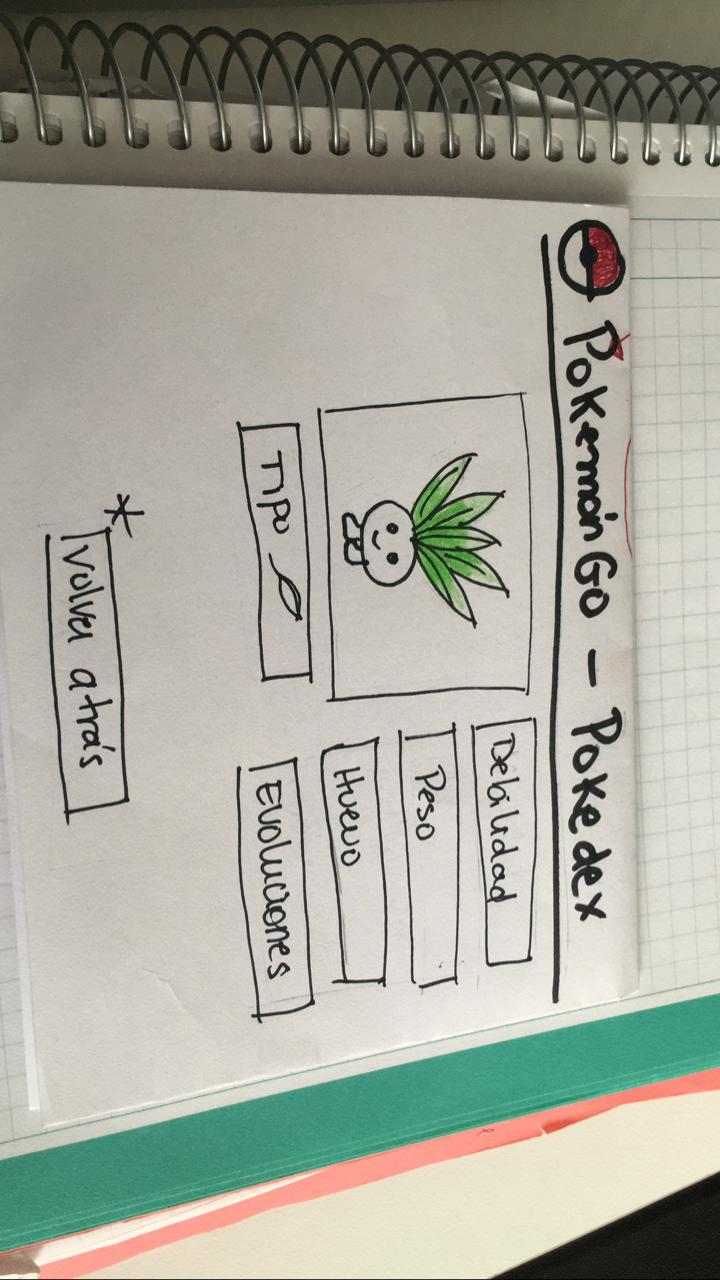 Pokemón Go - Pokedex
Debilidad
Peso
Huevo
Tipo
Evoluciones
* Volver atrás